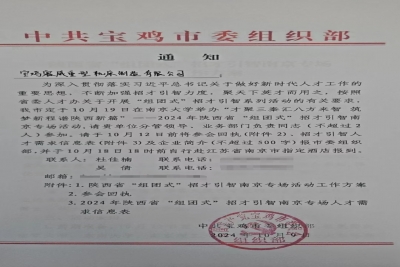 中共宝鸡市委组织部
通 知
宝鸡 重型机床制造有限公司：
为深入贯彻落实习近平总书记关于做好新时代人才工作的
重要思想，不断加强招才引智力度，聚天下英才而用之。按照
省委人才办关于开展"组团式"招才引智系列活动的有关要求，
我市定于10月19日在南京大学举办"才聚三秦汇八方来智 筑
梦新程谱陕西新篇"——2024年陕西省"组团式"招才引智南
京专场活动，请贵单位分管领导、业务部门负责同志（不超过2
人）参加。请于10月12日前将参会回执(附件2)、招才引智人
才需求信息表(附件3)及企业简介(不超过500字)报市委组织
部，并于10月18日18时前自行赴江苏省南京市指定酒店报到。
联系人：杜佳楠 联系电话：
吴 倩 联系电话：
邮箱：
附件：1.陕西省"组团式"招才引智南京专场活动工作方案
2.参会回执
3.2024年陕西省"组团式"招才引智南京专场人才需
求信息表
中共宝鸡市委组织部
2024年10月9日